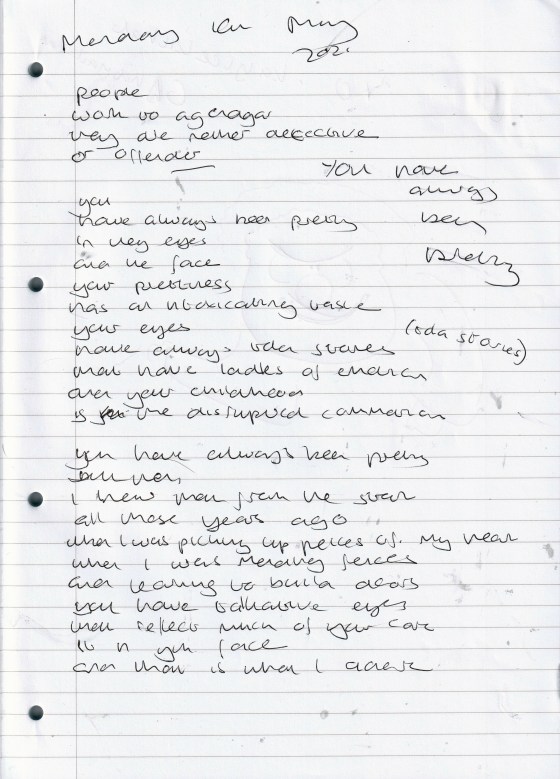 Monday 10th May
2021
people
work to
they are neither detective
or offender
You have
always
been
pretty
you
have always been pretty
in my eyes
and the face
your prettiness
has an intoxicating taste
your eyes
have always told stories
(told stories)
that have ladles of emotion
and your childhood
is the disrupted
you have always been pretty
I knew that from the start
all those years ago
when I was picking up pieces of my heart
when I was mending fences
and learning to build doors
you have talkative eyes
that reflect much of your core
its in your face
and that is what I adore